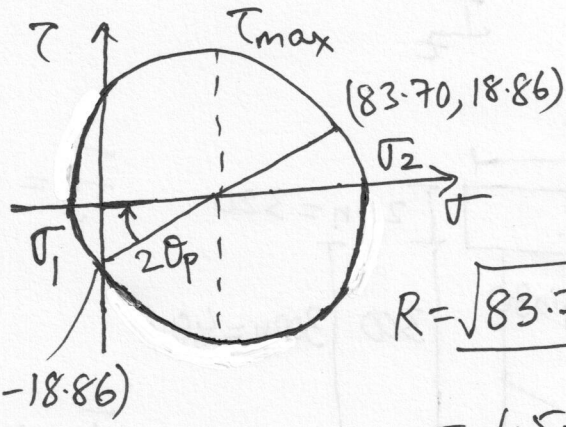 τ
τmax
(83.70, 18.86)
σ2
σ
σ1
2θp
R = √83.7
-18.86)